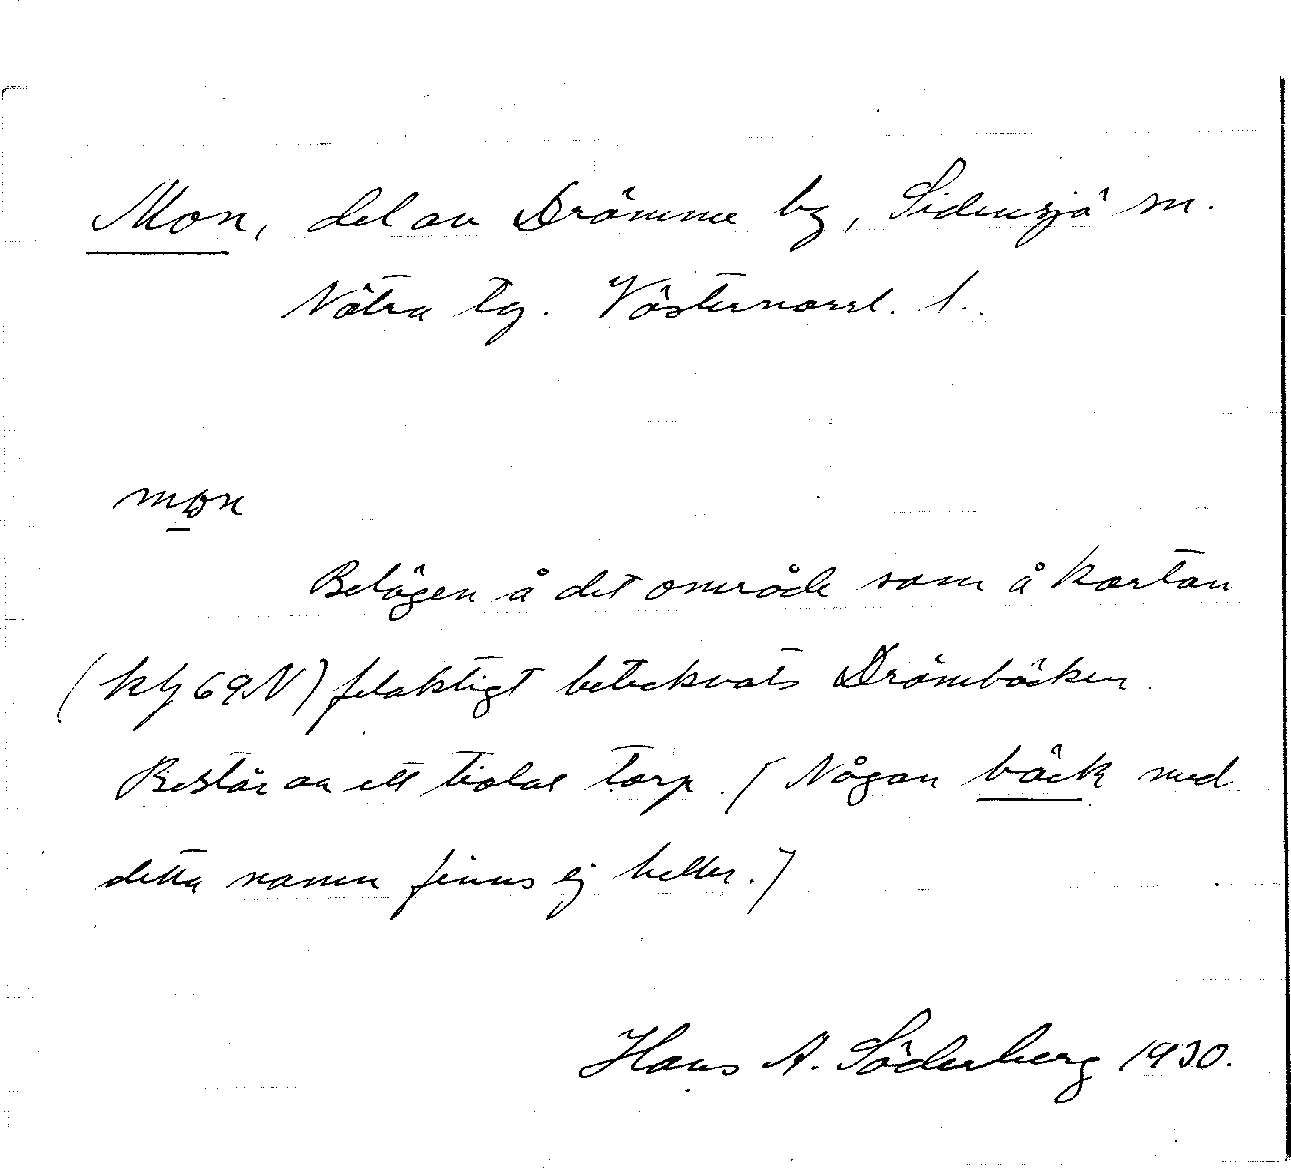 Mon, del av Drömme by, Sidensjö sn.
Nätra tg. Västernorrl. l.
mon
Belägen å det område som å kartan
(kbl 69N) felaktigt betecknats Drömbäcken.
Består av ett tiotal torp. (Någon bäck med
detta namn finns ej heller.)
Hans A. Söderberg 1930.